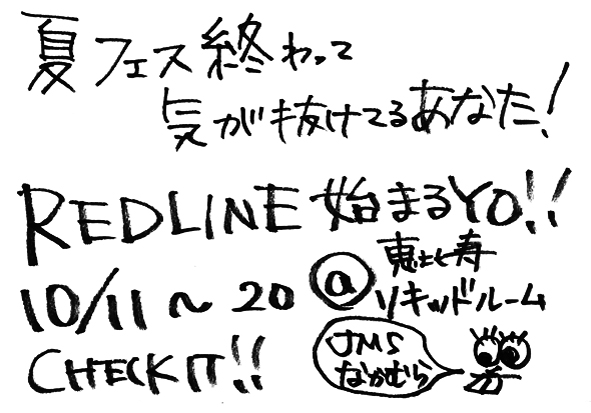 夏フェス終わって
気が抜けてるあなた!
REDLINE始まるYO!!
10/11〜20 @恵比寿
リキッドルーム
CHECK IT!!
JMS
なかむら